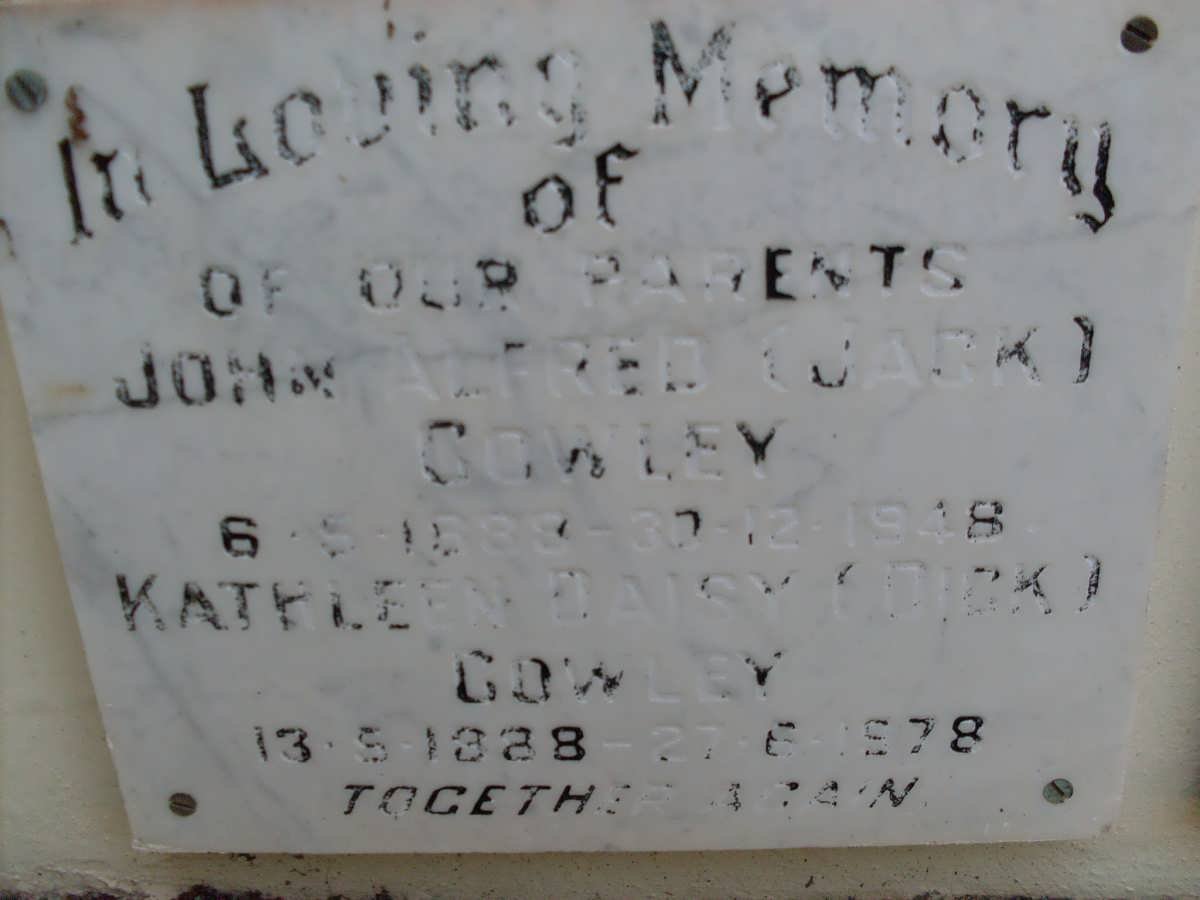 In Loving Memory
of
OF OUR PARENTS
JOHN ALFRED (JACK)
COWLEY
6·5·1888–30·12·1948
KATHLEEN DAISY (DICK)
COWLEY
13·5·1888–27·6·1978
TOGETHER AGAIN